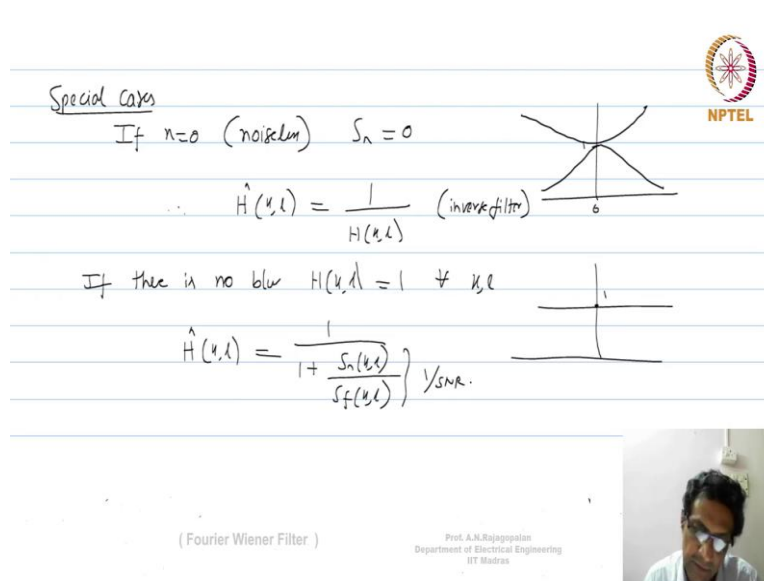 Special cases
NPTEL
If n=0 (noiseless) Sn = 0
1
∴ Ĥ(k,l) = 1 / H(k,l) (inverse filter)
0
If there is no blur H(k,l) = 1 ∀ k,l
1
Ĥ(k,l) = 1 / (1 + Sn(k,l) / Sf(k,l)) } 1/SNR.
( Fourier Wiener Filter )
Prof. A.N.Rajagopalan
Department of Electrical Engineering
IIT Madras